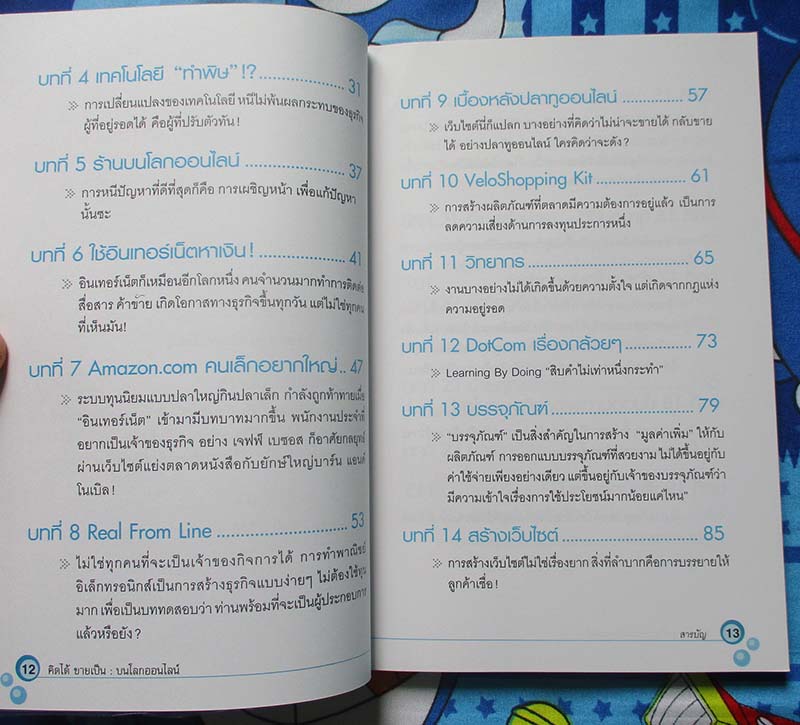 บทที่ 4 เทคโนโลยี “ทำพิษ”!?.................... 31
» การเปลี่ยนแปลงของเทคโนโลยี หนีไม่พ้นผลกระทบของธุรกิจ
ผู้ที่อยู่รอดได้ คือผู้ที่ปรับตัวทัน!
บทที่ 5 ร้านบนโลกออนไลน์.................... 37
» การหนีปัญหาที่ดีที่สุดก็คือ การเผชิญหน้า เพื่อแก้ปัญหา
นั้นซะ
บทที่ 6 ใช้อินเทอร์เน็ตหาเงิน!.................... 41
» อินเทอร์เน็ตก็เหมือนอีกโลกหนึ่ง คนจำนวนมากทำการติดต่อ
สื่อสาร ค้าขาย เกิดโอกาสทางธุรกิจขึ้นทุกวัน แต่ไม่ใช่ทุกคน
ที่เห็นมัน!
บทที่ 7 Amazon.com คนเล็กอยากใหญ่.. 47
» ระบบทุนนิยมแบบปลาใหญ่กินปลาเล็ก กำลังถูกท้าทายเมื่อ
“อินเทอร์เน็ต” เข้ามามีบทบาทมากขึ้น พนักงานประจำที่
อยากเป็นเจ้าของธุรกิจ อย่าง เจฟฟ์ เบซอส ก็อาศัยกลยุทธ์
ผ่านเว็บไซต์แย่งตลาดหนังสือกับยักษ์ใหญ่บาร์น แอนด์
โนเบิล!
บทที่ 8 Real From Line.................... 53
» ไม่ใช่ทุกคนที่จะเป็นเจ้าของกิจการได้ การทำพาณิชย์
อิเล็กทรอนิกส์เป็นการสร้างธุรกิจแบบง่ายๆ ไม่ต้องใช้ทุน
มาก เพื่อเป็นบททดสอบว่า ท่านพร้อมที่จะเป็นผู้ประกอบการ
แล้วหรือยัง?
12 คิดได้ ขายเป็น : บนโลกออนไลน์
บทที่ 9 เบื้องหลังปลาทูออนไลน์.................... 57
» เว็บไซต์นี้ก็แปลก บางอย่างที่คิดว่าไม่น่าจะขายได้ กลับขาย
ได้ อย่างปลาทูออนไลน์ ใครคิดว่าจะดัง?
บทที่ 10 VeloShopping Kit.................... 61
» การสร้างผลิตภัณฑ์ที่ตลาดมีความต้องการอยู่แล้ว เป็นการ
ลดความเสี่ยงด้านการลงทุนประการหนึ่ง
บทที่ 11 วิทยากร.................... 65
» งานบางอย่างไม่ได้เกิดขึ้นด้วยความตั้งใจ แต่เกิดจากกฎแห่ง
ความอยู่รอด
บทที่ 12 DotCom เรื่องกล้วยๆ.................... 73
» Learning By Doing “สิบคำไม่เท่าหนึ่งกระทำ”
บทที่ 13 บรรจุภัณฑ์.................... 79
» “บรรจุภัณฑ์” เป็นสิ่งสำคัญในการสร้าง “มูลค่าเพิ่ม” ให้กับ
ผลิตภัณฑ์ การออกแบบบรรจุภัณฑ์ที่สวยงาม ไม่ได้ขึ้นอยู่กับ
ค่าใช้จ่ายเพียงอย่างเดียว แต่ขึ้นอยู่กับเจ้าของบรรจุภัณฑ์ว่า
มีความเข้าใจเรื่องการใช้ประโยชน์มากน้อยแค่ไหน”
บทที่ 14 สร้างเว็บไซต์.................... 85
» การสร้างเว็บไซต์ไม่ใช่เรื่องยาก สิ่งที่ลำบากคือการบรรยายให้
ลูกค้าเชื่อ!
สารบัญ 13